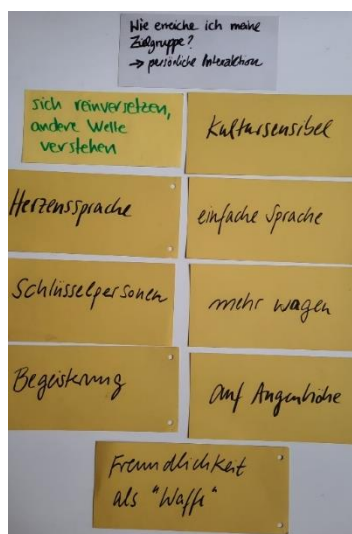 Wie erreiche ich meine
Zielgruppe?
→ persönliche Interaktion
sich reinversetzen,
andere Welle
verstehen
Kultursensibel
Herzenssprache
einfache Sprache
Schlüsselpersonen
mehr wagen
Begeisterung
auf Augenhöhe
Freundlichkeit
als "Waffe"